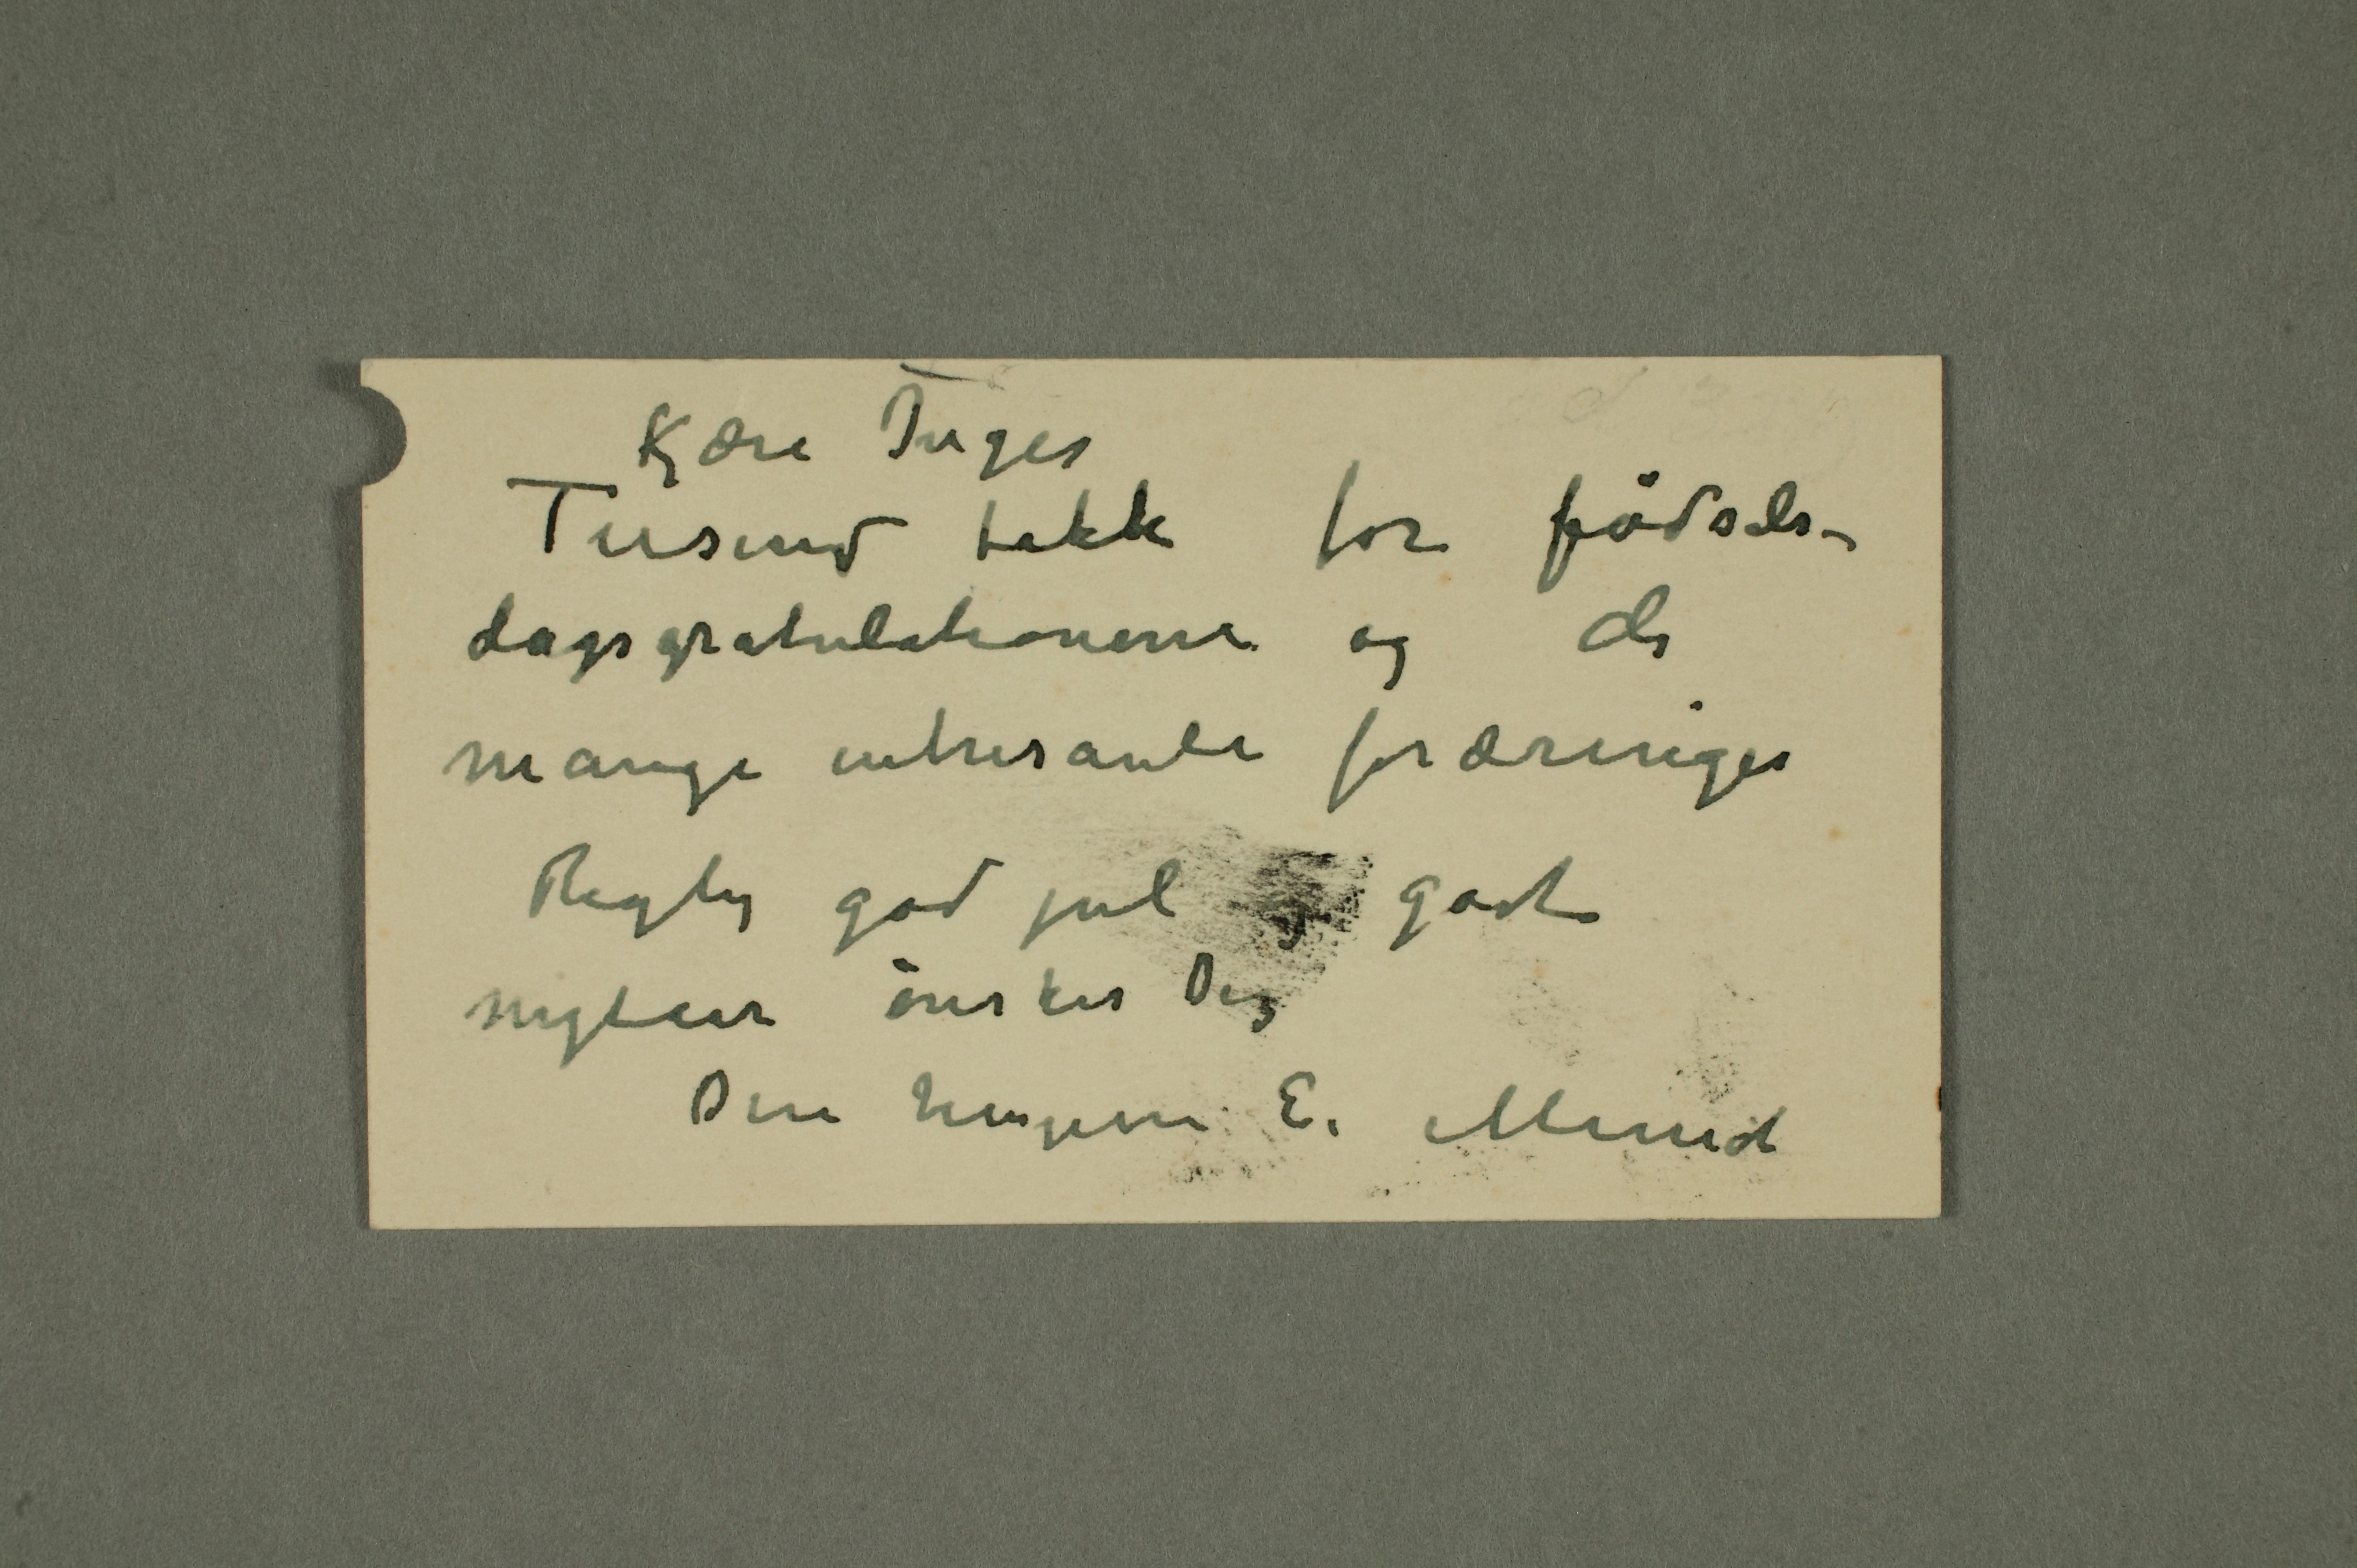 Kjære Inger
Tusend takk for fødsels-
dagsgratulationene og de
mange intresante foræringer
Rigtig god jul og godt
nytaar ønskes Dig
Din hengivne E. Munch